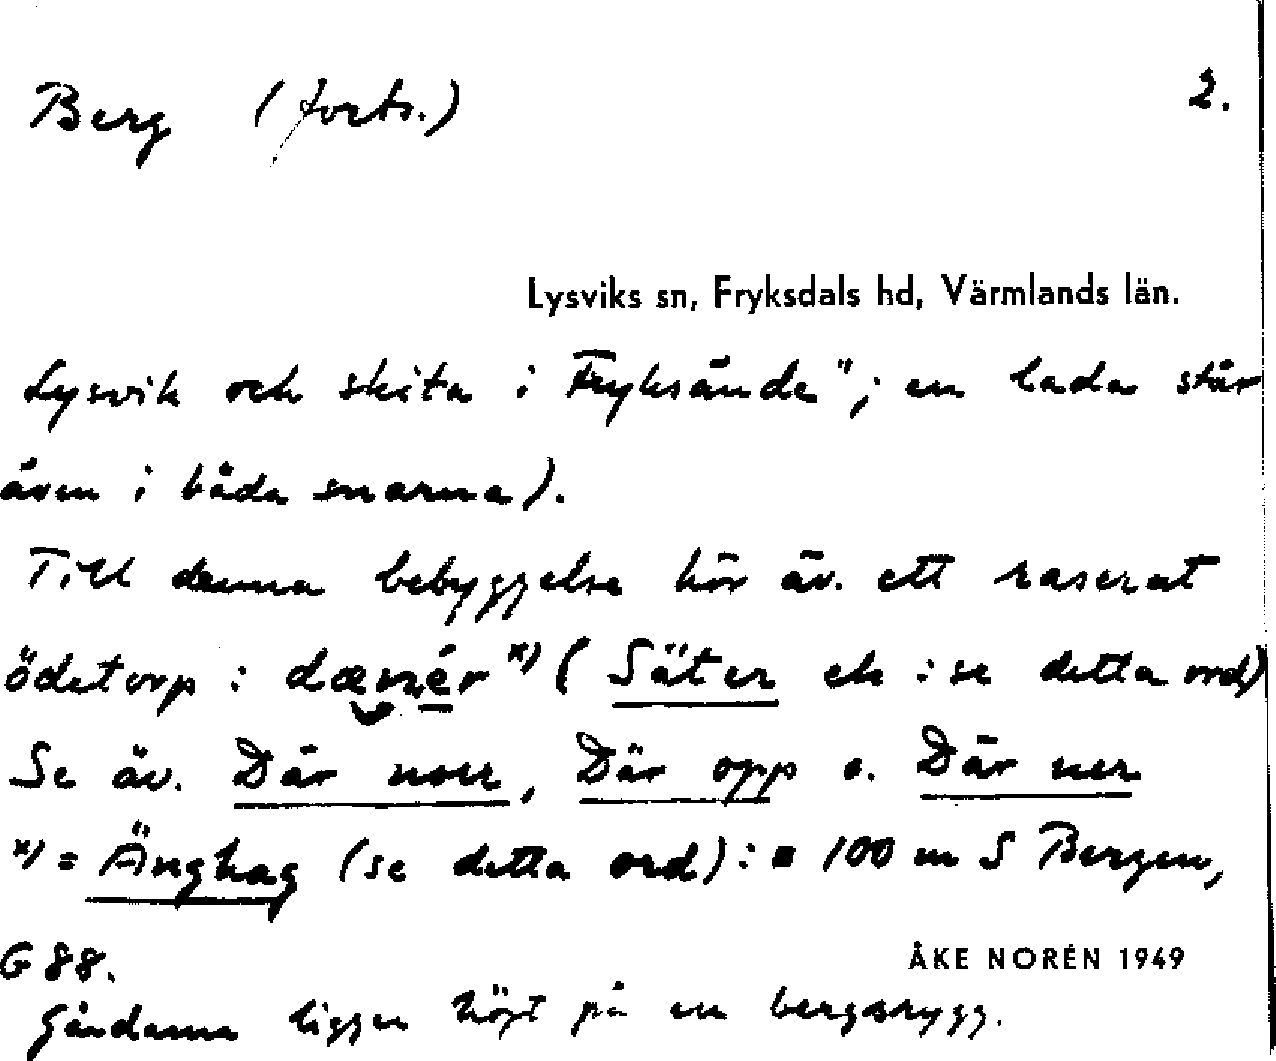 Berg (forts.) 2.
Lysviks sn, Fryksdals hd, Värmlands län.
Lysvik och skita i Fryksände"; en lada står
även i båda snarna).
Till denna bebyggelse hör äv. ett raserat
ödetorp : dænér x) ( Säter el. : se detta ord)
Se äv. Där norr, Där opp o. Där ner
x) = Änghag (se detta ord) : 100 m S Bergen,
G 88.
ÅKE NORÉN 1949
Gårdarna ligger högt på en bergsrygg.